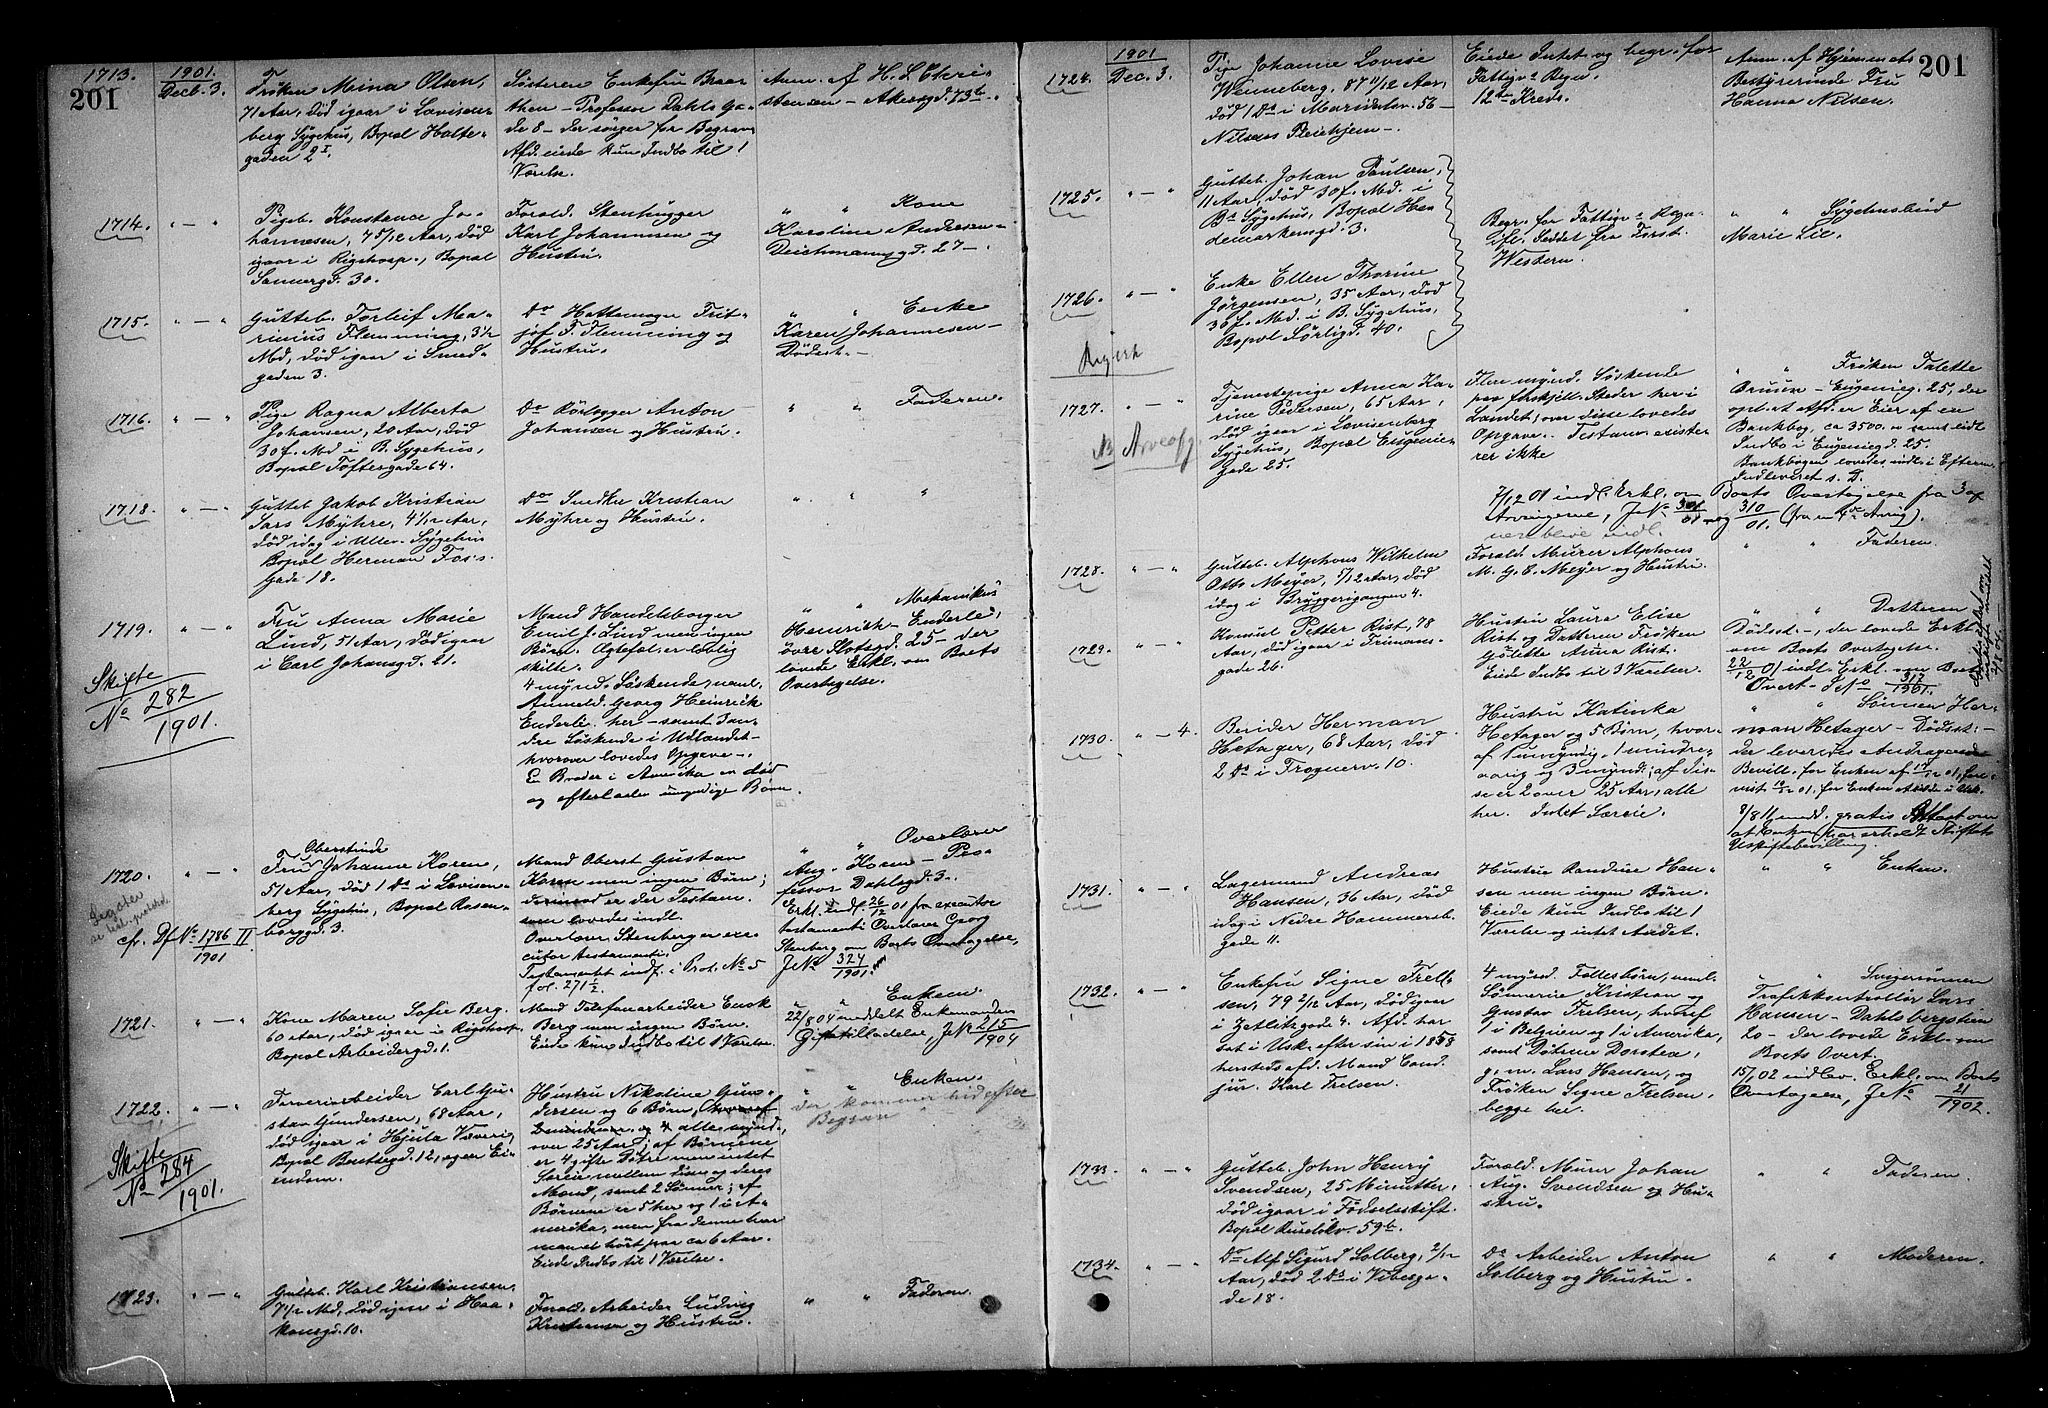 201
1713.
1901.
Decb. 3.
Frøken Meina Olsen,
71 Aar, død igaar i Lovisen-
berg Sygehus, Bopæl Holte-
gaden 2 I.
Søsteren Enkefru Braa-
then – Professor Dahls Ga-
de 8 – der sørger for Begrav.
Afd. eiede kun Indbo til 1
Værelse.
Anm. af H. L. Chri-
stensen – Akersgd. 73 b –.
1714.
" — "
Pigeb. Konstance Jo-
hannesen, 7 5/12 Aar, død
igaar i Rigshosp., Bopæl
Sannergd. 30.
Foræld. Stenhugger
Karl Johannesen og
Hustru.
" " Kone
Karoline Andersen –
Deichmannsgd. 27 –.
1715.
" — "
Gutteb. Torleif Ma-
rinius Flemming, 3 1/2
Md, død igaar i Smed-
gaden 3.
Do Hattemager Frit-
jof F. Flemming og
Hustru.
" " Enke
Karen Johannesen –
Dødsst. –
1716.
" — "
Pige Ragna Alberta
Johansen, 20 Aar, død
30 f. Md i B. Sygehus,
Bopæl Toftesgade 64.
Do Rørlægger Anton
Johansen og Hustru.
" " Faderen.
1718.
" — "
Gutteb. Jakob Kristian
Lars Myhre, 4 1/12 Aar,
død idag i Ullev. Sygehus
Bopæl Herman Foss's
Gade 18.
Do Snedker Kristian
Myhre og Hustru.
" " "
1719.
" — "
Skifte
No 282
1901.
Fru Anna Marie
Lund, 51 Aar, død igaar
i Carl Johansgd. 21.
Mand Handelsborger
Emil J. Lund men ingen
Børn. Ægtefol. er lovlig
skilte.
4 mynd. Søskende, nml.
Anmeld. Georg Heinrich
Enderlé, her – samt 3 an-
dre Søskende i Udlandet –
hvorover lovedes Opgave –.
En Broder i Amerika er død
og efterlader umyndige Børn.
" " Mekanikus
Heinrich Enderlé,
øvre Slotsgd. 25 – der
lovede Erkl. om Boets
Overtagelse.
1720.
" — "
cfr. Df No 1786 II
1901
Oberstinde
Fru Johanne Koren,
51 Aar, død 1 Ds i Lovisen-
berg Sygehus, Bopæl Rosen-
borggd. 3.
Mand Oberst Gustav
Koren men ingen Børn;
derimod er der Testam.
som lovedes indl.
Overlærer Stenberg er exe-
cutor testamenti.
Testamentet indf. i Prot. No 5
fol. 271 1/2.
" " Overlærer
Aug. Koren – Pro-
fessor Dahlsgd. 3.
Erkl. indl. 26/12 01 fra executor
testamenti Overlærer Georg
Stenberg om Boets Overtagelse,
JNo 324
1901.
1721.
" — "
Kone Maren Sofie Berg.
60 Aar, død igaar i Rigshosp.
Bopæl Arbeidergd. 1.
Mand Telefonarbeider Enok
Berg men ingen Børn.
Eiede kun Indbo til 1 Værelse.
" " Enkem.
22/8 04 meddelt Enkemanden
Giftetilladelse, JNo 215
1904
1722.
" — "
Skifte
No 284
1901.
Farveriarbeider Carl Gu-
stav Gundersen, 68 Aar,
død igaar i Hjula Væveri,
Bopæl Bentsegd. 12, egen Ei-
endom.
Hustru Nikoline Gun-
dersen og 6 Børn,
alle mynd.,
over 25 Aar; af Børnene
er 4 gifte Døtre men intet
Særeie mellem dem og deres
Mænd, samt 2 Sønner; af
Børnene er 5 her og 1 i A-
merika, men fra denne har
man ei hørt paa ca 6 Aar.
Eiede Indbo til 1 Værelse.
" " Enken.
der kommer hid efter
Begrav.
1723.
" — "
Gutteb. Karl Kristiansen,
7 1/2 Md, død igaar i Haa-
konsgd. 10.
Foræld. Arbeider Ludvig
Kristiansen og Hustru.
" " Faderen.
201
1724.
1901
Dec. 3.
Pige Johanne Lovise
Wenneberg, 87 11/12 Aar,
død 1 Ds i Maridalsv. 56 –
Nilsens Pleiehjem –.
Eiede Intet og begr. for
Fattigv. Regn.
12te Kreds.
Anm. af Hjemmets
Bestyrerinde Fru
Hanna Nilsen.
1725.
" — "
Gutteb. Johan Paulsen,
11 Aar, død 30 f. Md. i
Bs Sygehus, Bopæl He-
demarkensgd. 3.
Begr. for Fattigv. Regn.
ifl. Seddel fra Forst.
Western.
" " Sygehusbud
Marie Lie.
1726.
" — "
Enke Ellen Thorine
Jørgensen, 35 Aar, død
30 f. Md. i B. Sygehus,
Bopæl Sørligd. 40.
1727.
" — "
NB Arveafg.
Tjenestepige Anna Ka-
rine Pedersen, 65 Aar,
død igaar i Lovisenberg
Sygehus, Bopæl Eugenie-
gade 25.
Flere mynd. Søskende
paa forskjell. Steder her i
Landet; over disse lovedes
Opgave. Testam. existe-
rer ikke
" " Frøken Talette
Bruun – Eugenieg. 25, der
opl. at Afd. er Eier af en
Bankbog, ca 3500.– samt lidt
Indbo i Eugeniegd. 25.
Bankbogen lovedes indl. i Efterm.
Indleveret s. D.
7/12 01 indl. Erkl. om Boets Overtagelse fra 3 af
Arvingerne, JNo 301/01 og 310/01. (fra en 4de Arving).
1728.
" — "
Gutteb. Alphons Wilhelm
Otto Meyer, 5/12 Aar, død
idag i Bryggerigangen 4.
Foræld. Murer Alphons
M. G. E. Meyer og Hustru.
" " Faderen.
1729.
" — "
Konsul Petter Rist, 78
Aar, død igaar i Frimans-
gade 26.
Hustru Laura Elise
Rist og Datteren Frøken
Gølette Anna Rist.
Eiede Indbo til 3 Værelser.
" " Datteren
Dødsst. –, der lovede Erkl.
om Boets Overtagelse.
22/12 01 indl. Erkl. om Boets
Overt. JNo 317
1901.
1730.
" — 4.
Bereider Herman
Hetager, 68 Aar, død
2 Ds i Frognerv. 10.
Hustru Katinka
Hetager og 5 Børn, hvor-
af 1 umyndig, 1 mindre-
aarig og 3 mynd.; af dis-
se er 2 over 25 Aar, alle
her. Intet Særeie.
" " Sønnen Her-
man Hetager – Dødsst. –
der leveredes Andragende
Bevill. for Enken af 17/12 01, fore-
vist 19/12 01, for Enken at sidde i Usk.
8/8 11 medd. gratis Attest om
at Enken har erholdt Stiftets
Uskiftebevilling.
1731.
" — "
Lagermand Andreas
Hansen, 36 Aar, død
idag i Nedre Hammersb.
gade 11.
Hustru Randine Han-
sen men ingen Børn.
Eiede kun Indbo til 1
Værelse og intet Andet.
" " Enken.
1732.
" — "
Enkefru Signe Trell-
sen, 79 2/12 Aar, død igaar
i Zetlitzgade 4. Afd. har
sat i Usk. efter sin i 1858
hersteds afd. Mand Cand.
jur. Karl Trelsen.
4 mynd. Fællesbørn, nml.
Sønnerne Kristian og
Gustav Trelsen, hvoraf
1 i Belgien og 1 i Amerika,
samt Døtrene Dorothea,
g. m. Lars Hansen, og
Frøken Signe Trelsen,
begge her.
" " Svigersønnen
Trafikkontrollør Lars
Hansen – Dahlsbergstien
20 – der lovede Erkl. om
Boets Overt.
15/1 02 indlev. Erkl. om Boets
Overtagelse, JNo 21
1902.
1733.
" — "
Gutteb. John Henry
Svendsen, 25 Minutter,
død igaar i Fødselsstift.
Bopæl Ruseløkv. 59 b.
Foræld. Murer Johan
Aug. Svendsen og Hu-
stru.
" " Faderen.
1734.
" — "
Do Alf Sigurd Solberg, 2/12
Aar, død 2 Ds i Vibesga-
de 18.
Do Arbeider Anton
Solberg og Hustru.
" " Moderen.